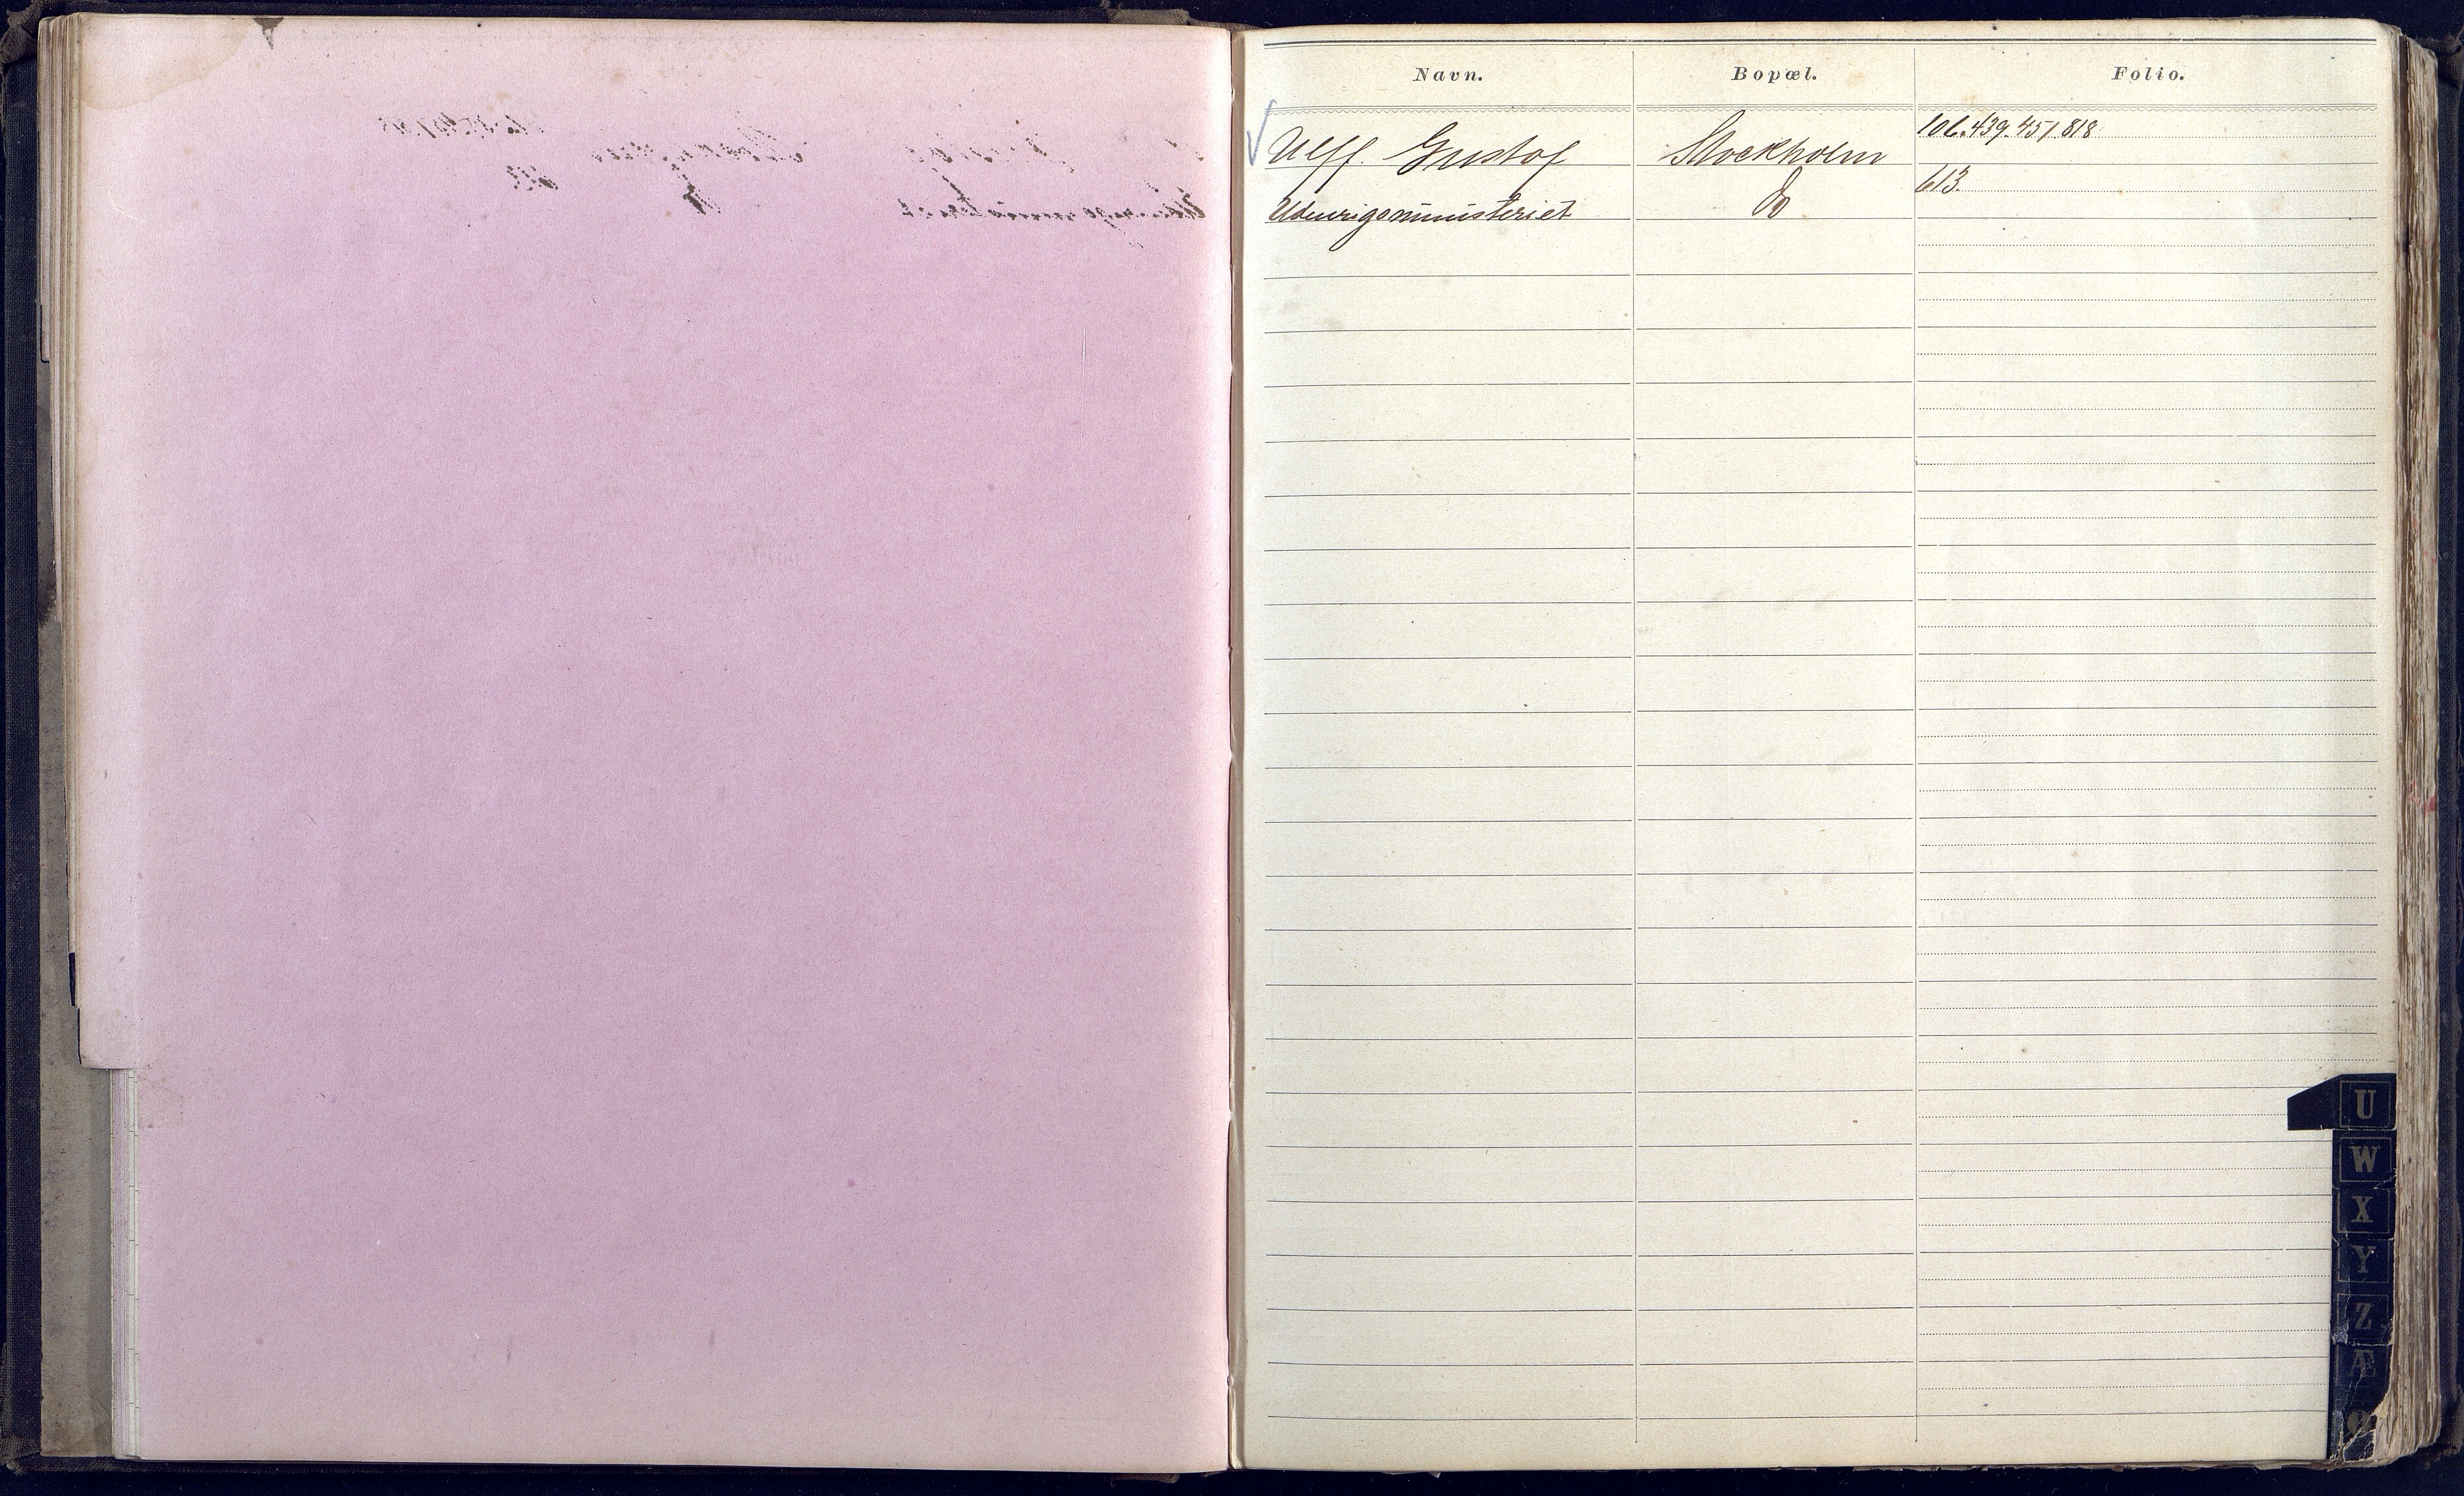 Navn. Bopæl. Folio.
Ulff. Gustof Stockholm 106.439.451.818
Udenrigsministeriet do 613.
U
W
X
Y
Z
Æ
Ø